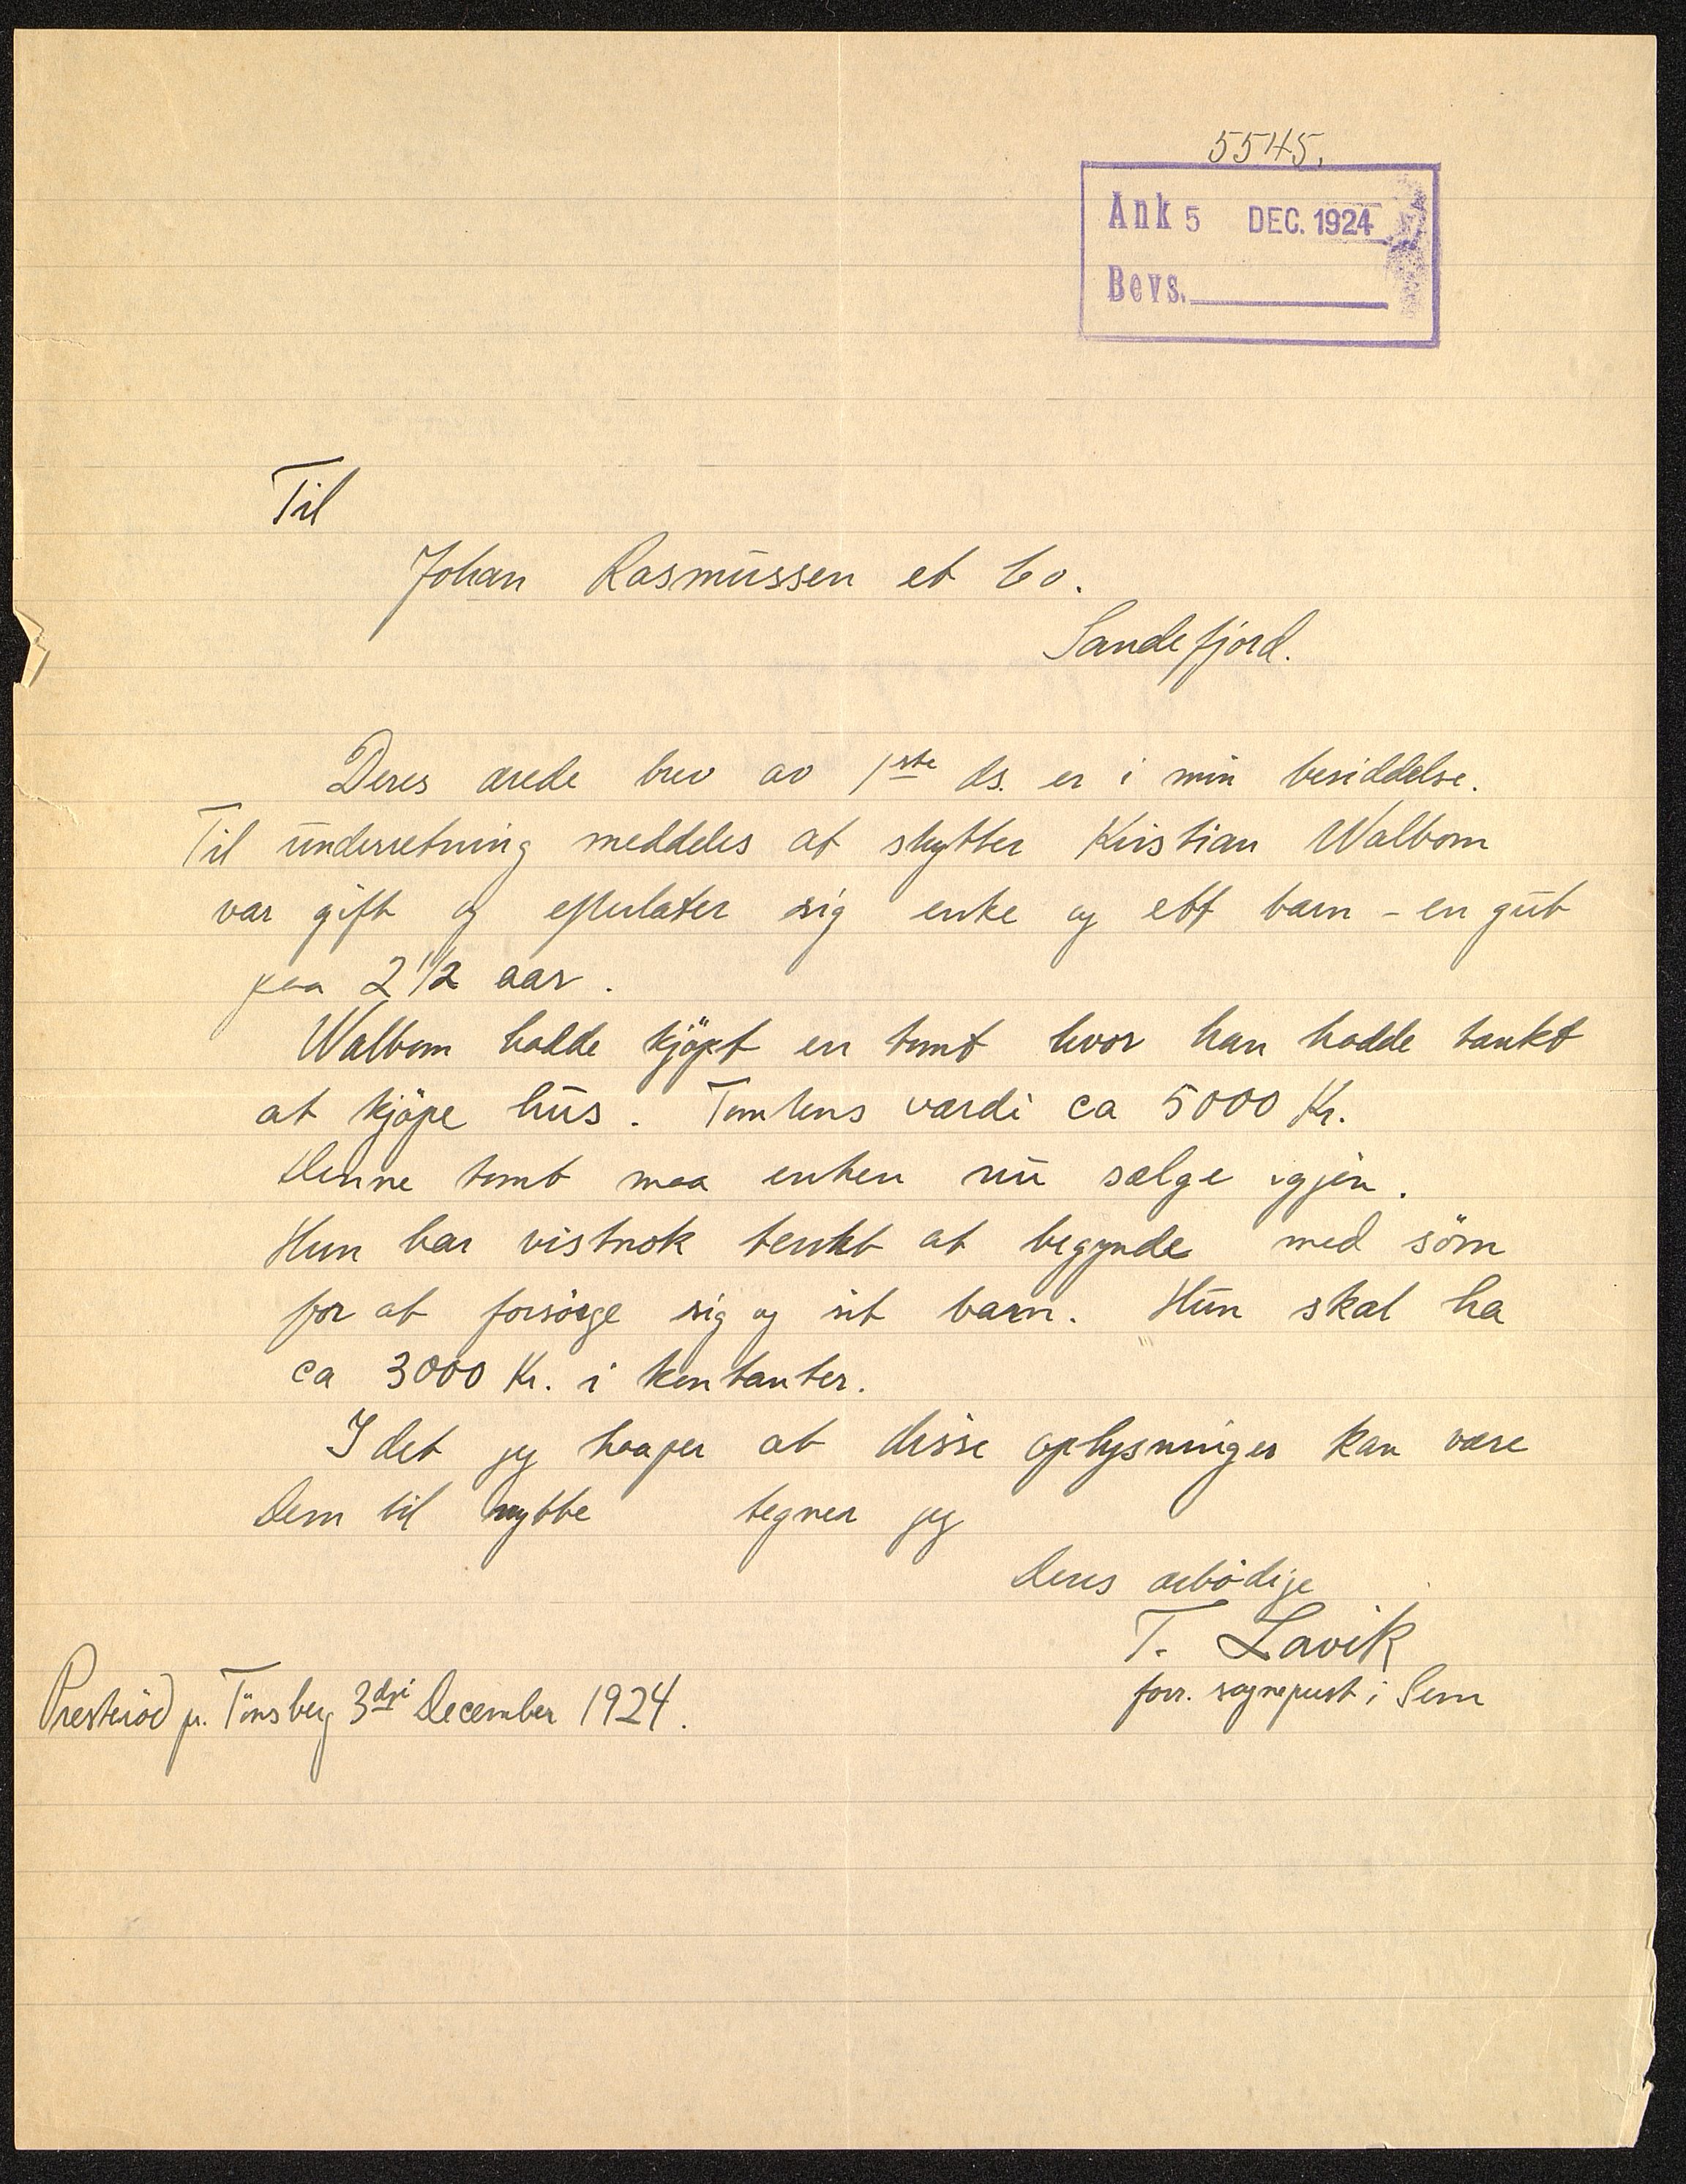 5545.
Ank 5 DEC. 1924
Bevs.
Til
Johan Rasmussen et Co.
Sandefjord.
Deres ærede brev av 1ste ds. er i min besiddelse.
Til underretning meddeles at skytter Kristian Walbom
var gift og efterlater sig enke og ett barn - en gut
paa 2 1/2 aar.
Walbom hadde kjöpt en tomt hvor han hadde tænkt
at kjöpe hus. Tomtens værdi ca 5000 Kr.
Denne tomt maa enken nu sælge igjen.
Hun har vistnok tenkt at begynde med söm
for at forsörge sig og sit barn. Hun skal ha
ca 3000 Kr. i kontanter.
I det jeg haaper at disse oplysninger kan være
Dem til nytte tegner jeg
Deres ærbødige
T. Lavik
forr. sogneprest i Sem
Presteröd pr. Tönsberg 3dje December 1924.